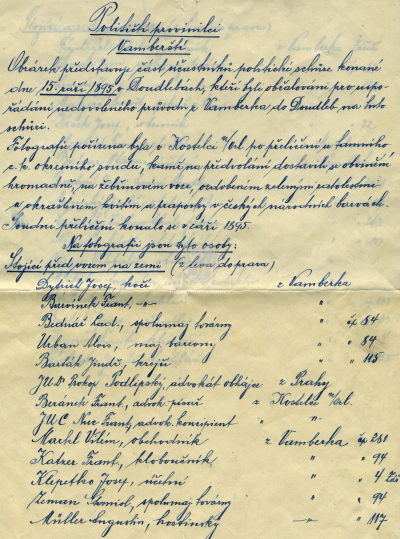 Političtí provinilci
Vamberští
Obrázek představuje část účastníků politické schůze konané
dne 15. září 1895 v Doudlebách, kteří byli obžalováni pro uspo-
řádání nedovoleného průvodu z Vamberka do Doudleb na tuto
schůzi.
Fotografie pořízena byla v Kostelci n/Orl. po přelíčení u tamního
c. k. okresního soudu, kamž na předvolání dostavili se obvinění
hromadně, na žebřinovém voze, ozdobeném zelenými ratolestmi
a okrášleném kvítím a praporky v českých národních barvách.
Soudní přelíčení konalo se v září 1895.
Na fotografii jsou tyto osoby:
Stojící před vozem na zemi (z leva do prava)
Josef, kočí z Vamberka
Frant. -"- "
Bednář Lad., spolumaj. továrny " čp 84
Urban Alois, maj. barevny " " 84
Barták Jindř., krejčí " " 115
JUDr Prokop Podlipský, advokát obhájce z Prahy
Beránek Frant., advok. písař z Kostelce n/Orl.
JUC Frant., advok. koncipient " "
Vilém, obchodník z Vamberka čp 281
Katzer Frant., kloboučník " " 94
Klepetko Josef, účetní " " 4
Zeman, spolumaj. továrny " " 94
Müller Augustin, hostinský -"- " 187